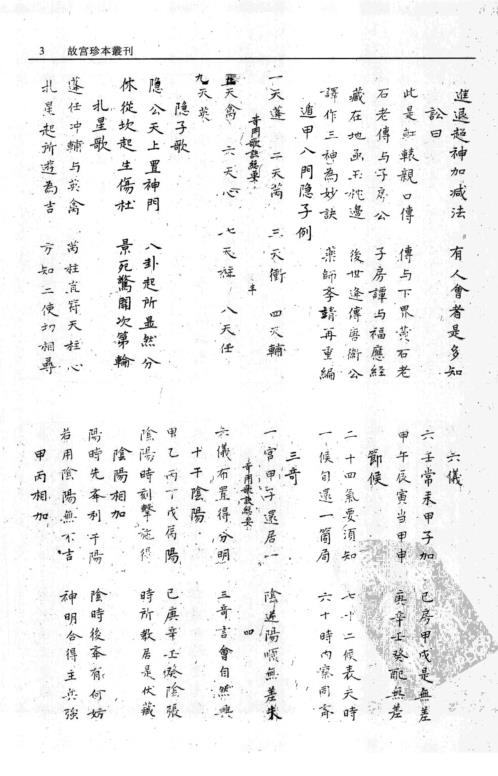 3 故宫珍本叢刊
進退超神加減法 有人會者是多知
訟曰
此是軒轅親口傳 傳与下界黄石老
石老傳与子房公 子房譚与福應經
藏在地 玉枕邊 後世逢傳 衛公
譯作三神為妙訣 藥師李靖再重編
遁甲八門隐子例
奇門歌訣總要
一天蓬 二天芮 三天衝 四天輔
五天禽 六天心 七天柱 八天任
九天英
隐子歌
隐公天上置神門 八卦起所显然分
休從坎起生傷杜 景死驚開次第輪
九星歌
蓬任冲輔与英禽 芮柱 天柱心
九星起所遊為吉 方知二使切相尋
六儀
六壬常来甲子加 己房甲戌是無差
甲午辰寅当甲申 庚辛壬癸配無差
節候
二十四氣要須知 七十二候表天時
一候旬还一箇局 六十時内察周齊
三奇
一宫甲子还居一 陰逆陽順無差失
奇門歌訣總要 四
六儀布置得分明 三奇言會自然兴
十干陰陽
甲乙丙丁戊属陽 己庚辛壬癸陰張
陰陽時刻擊施得 時所数居是伏藏
陰陽相加
陽時先奪利于陽 陰時後 有何妨
若用陰陽無不吉 神明合得主兵強
甲丙相加